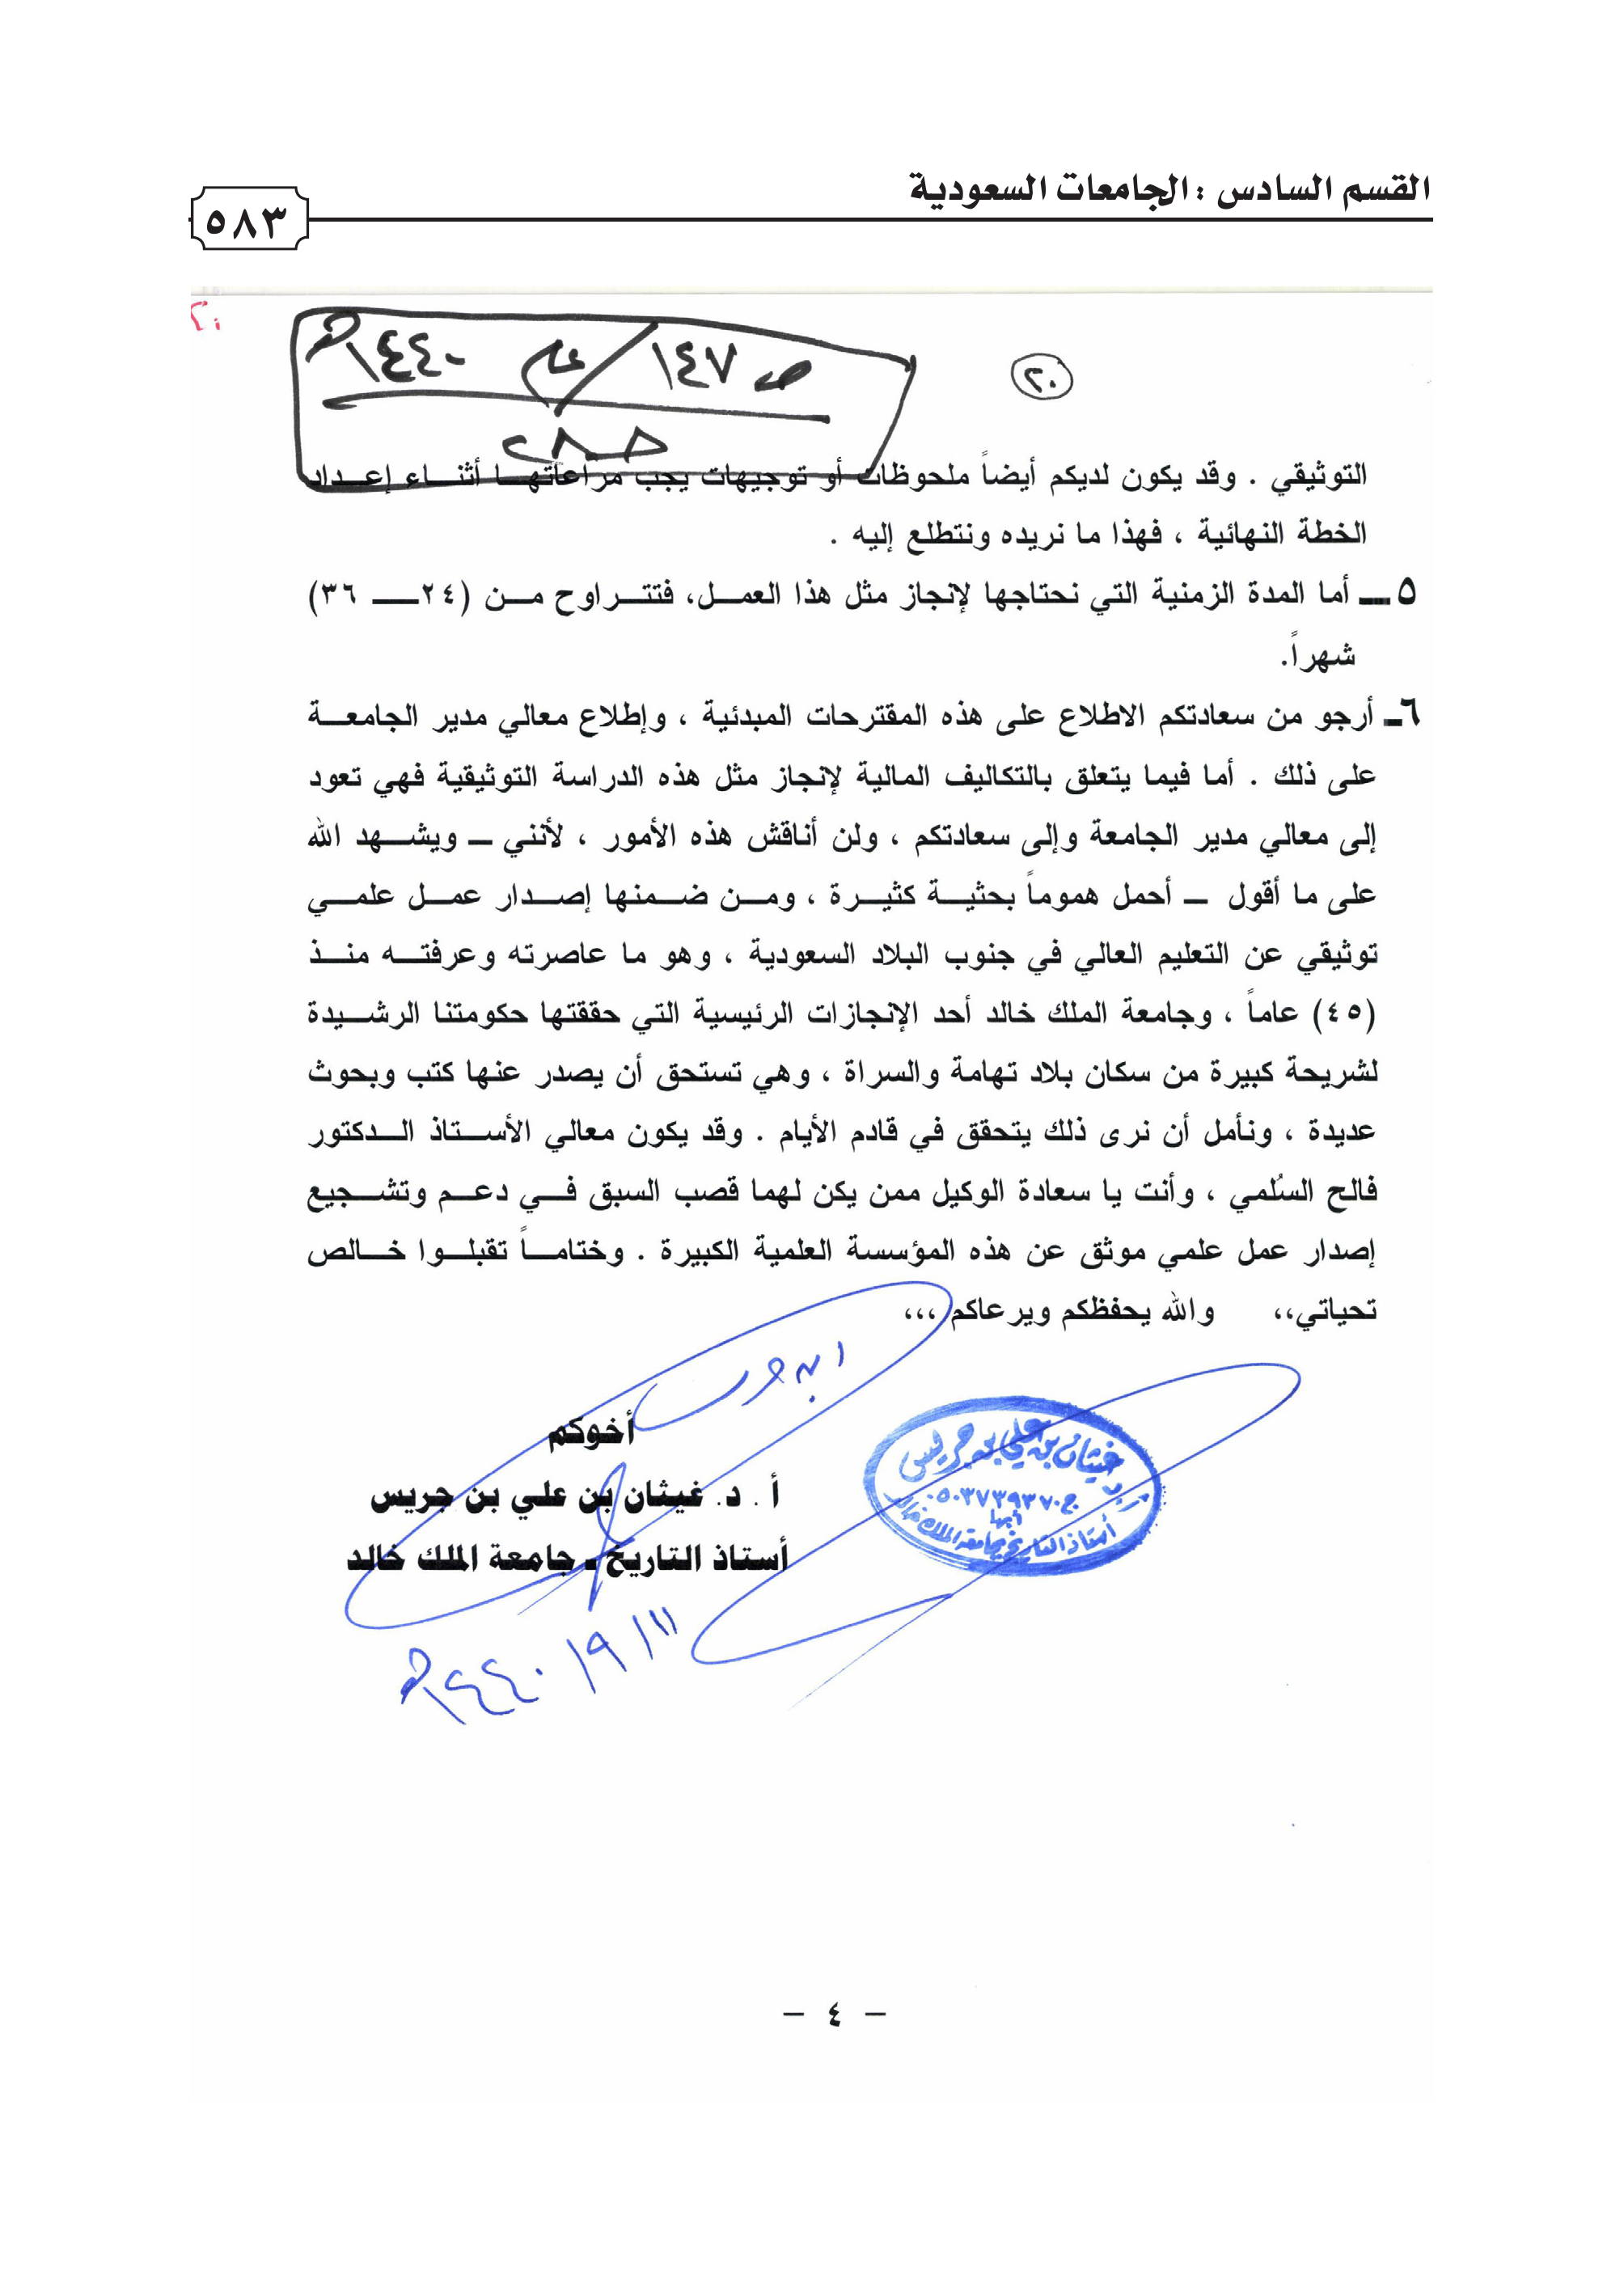 القسم السادس : الجامعات السعودية
٥٨٣
٢٠
ص ١٤٧ / عام ١٤٤٠هـ
التوثيقي . وقد يكون لديكم أيضاً ملحوظات أو توجيهات يجب مراعاتها أثناء إعداد
الخطة النهائية ، فهذا ما نريده ونتطلع إليه .
٥ــ أما المدة الزمنية التي نحتاجها لإنجاز مثل هذا العمل، فتتراوح من (٢٤ــ ٣٦)
شهراً.
٦ـ أرجو من سعادتكم الاطلاع على هذه المقترحات المبدئية ، وإطلاع معالي مدير الجامعة
على ذلك . أما فيما يتعلق بالتكاليف المالية لإنجاز مثل هذه الدراسة التوثيقية فهي تعود
إلى معالي مدير الجامعة وإلى سعادتكم ، ولن أناقش هذه الأمور ، لأنني ــ ويشهد الله
على ما أقول ــ أحمل هموماً بحثية كثيرة ، ومن ضمنها إصدار عمل علمي
توثيقي عن التعليم العالي في جنوب البلاد السعودية ، وهو ما عاصرته وعرفته منذ
(٤٥) عاماً ، وجامعة الملك خالد أحد الإنجازات الرئيسية التي حققتها حكومتنا الرشيدة
لشريحة كبيرة من سكان بلاد تهامة والسراة ، وهي تستحق أن يصدر عنها كتب وبحوث
عديدة ، ونأمل أن نرى ذلك يتحقق في قادم الأيام . وقد يكون معالي الأستاذ الدكتور
فالح السُلمي ، وأنت يا سعادة الوكيل ممن يكن لهما قصب السبق في دعم وتشجيع
إصدار عمل علمي موثق عن هذه المؤسسة العلمية الكبيرة . وختاماً تقبلوا خالص
تحياتي،، والله يحفظكم ويرعاكم ،،،
أخوكم
أ . د. غيثان بن علي بن جريس
أستاذ التاريخ ـ جامعة الملك خالد
غيثان بن علي بن جريس
ج٠٥٠٣٧٣٩٣٧٠
أبها
أستاذ التاريخ بجامعة الملك خالد
١١/ ٩/ ١٤٤٠هـ
– ٤ –